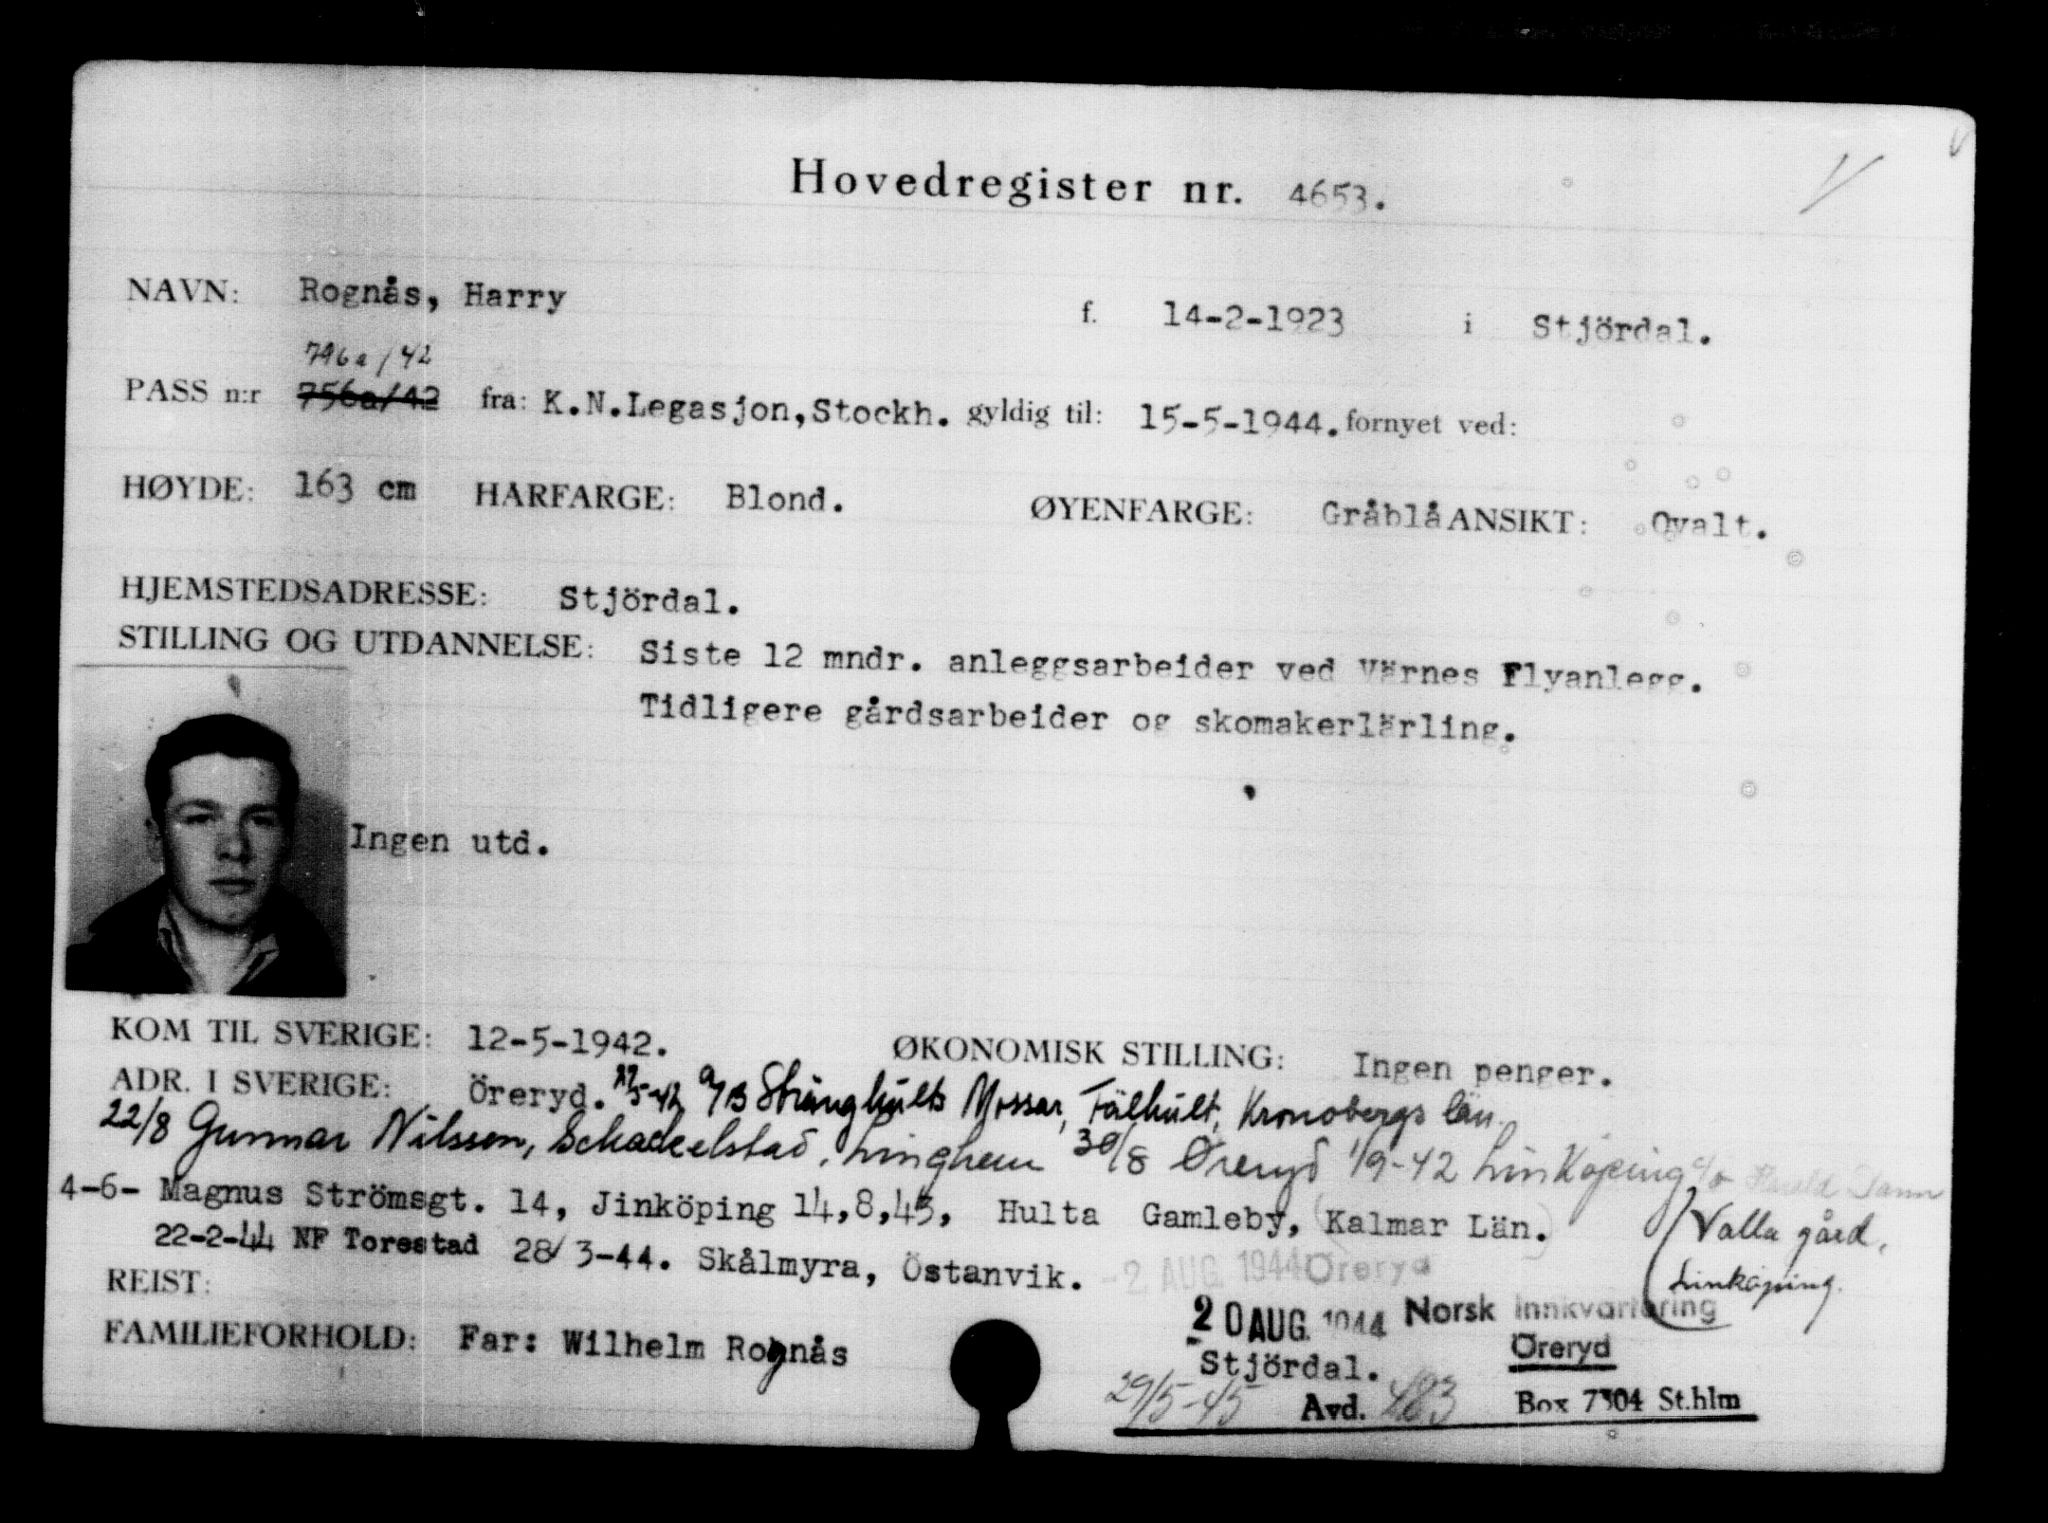 Hovedregister nr. 4653.
NAVN: Rognås, Harry f. 14-2-1923 i Stjördal.
796a/42
PASS n:r 756a/42 fra: K.N.Legasjon,Stockh. gyldig til: 15-5-1944. fornyet ved:
HØYDE: 163 cm HARFARGE: Blond. ØYENFARGE: Gråblå ANSIKT: Ovalt.
HJEMSTEDSADRESSE: Stjördal.
STILLING OG UTDANNELSE: Siste 12 mndr. anleggsarbeider ved Värnes Flyanlegg.
Tidligere gårdsarbeider og skomakerlärling.
Ingen utd.
KOM TIL SVERIGE: 12-5-1942. ØKONOMISK STILLING: Ingen penger.
ADR. I SVERIGE: Öreryd. 5-42 A/B Stränghults Mossar, Fälhult, Kronobergs län.
22/8 Gunnar Nilsson, Schackelstad, Linghem 30/8 Øreryd 1/9-42 Linköping c/o Harald
4-6- Magnus Strömsgt. 14, Jinköping 14,8,43, Hulta Gamleby, (Kalmar Län.)
Valla gård,
Linköping.
22-2-44 NF Torestad 28/3-44. Skålmyra, Östanvik. -2 AUG. 1944 Öreryd
REIST:
20 AUG. 1944 Norsk Innkvartering
Öreryd
FAMILIEFORHOLD: Far: Wilhelm Rognås Stjördal.
29/5-45 Avd. 483 Box 7304 St.hlm